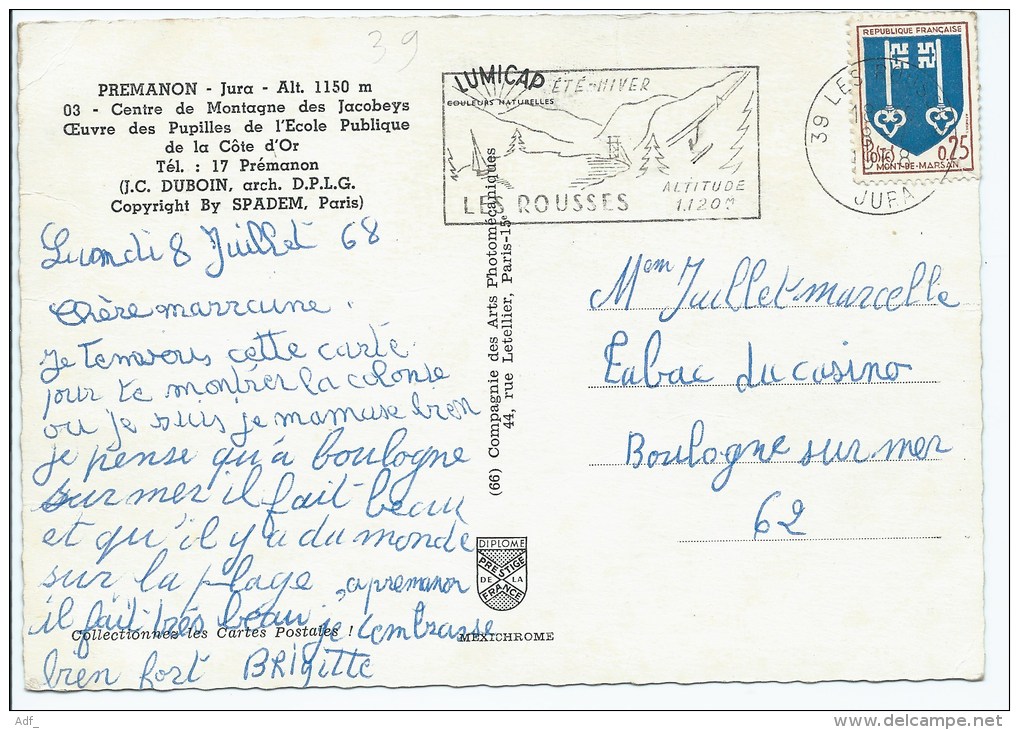 39
PREMANON - Jura - Alt. 1150 m
03 - Centre de Montagne des Jacobeys
Œuvre des Pupilles de l'Ecole Publique
de la Côte d'Or
Tél. : 17 Prémanon
(J.C. DUBOIN, arch. D.P.L.G.
Copyright By SPADEM, Paris)
Lundi 8 Juillet 68
Chère marraine.
je t'envois cette carte
pour te montrer la colonie
ou je suis je mamuse bien
je pense qu'à boulogne
sur mer il fait beau
et qu'il y a du monde
sur la plage, a premanon
il fait très beau je t'embrasse
bien fort BRigitte
Collectionnez les Cartes Postales !
LUMICAP
COULEURS NATURELLES
ÉTÉ-HIVER
LES ROUSSES
ALTITUDE
1.120M
(66) Compagnie des Arts Photomécaniques
44, rue Letellier, Paris-15e
DIPLOME
PRESTIGE
DE LA
FRANCE
MEXICHROME
REPUBLIQUE FRANÇAISE
0,25
MONT-DE-MARSAN
39 LES
JURA
Mem Juillet marcelle
Tabac du casino
Boulogne sur mer
62
Adf_
www.delcampe.net